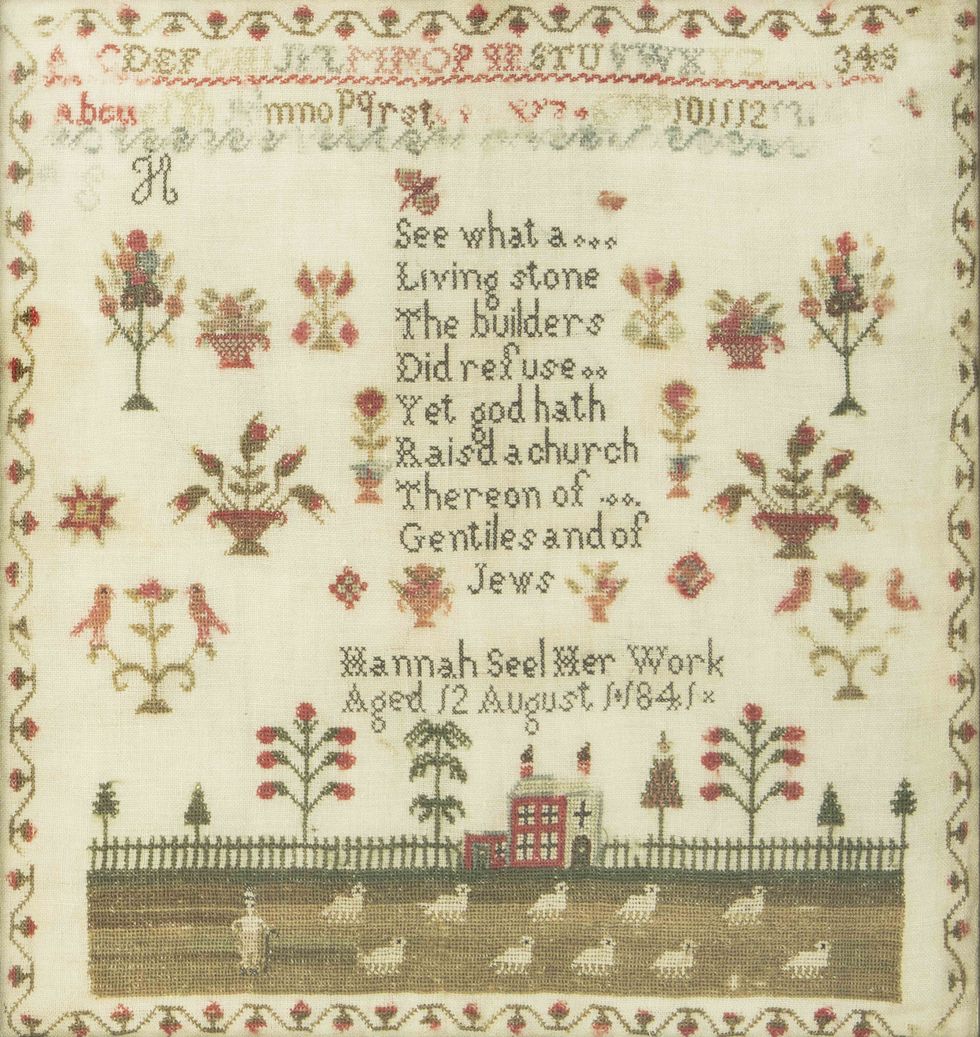 A C DEFGHIJKLMNOPQRSTUVWXYZ 345
abcd mnopqrst 10 11 12
S H
See what a...
Living stone
The builders
Did refuse..
Yet god hath
Raisd a church
Thereon of ...
Gentiles and of
Jews
Hannah Seel Her Work
Aged 12 August 1841